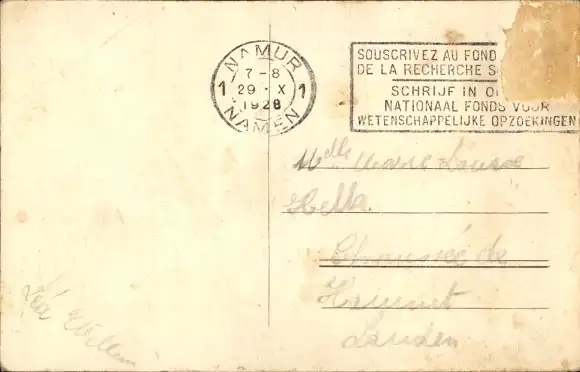 NAMUR
7-8
1 29·X 1
1928
NAMEN
SOUSCRIVEZ AU FOND
DE LA RECHERCHE S
SCHRIJF IN O
NATIONAAL FONDS VOOR
WETENSCHAPPELIJKE OPZOEKINGEN
Melle Marie Louise
Hella.
Chaussée de
Hannut
Landen
Léa